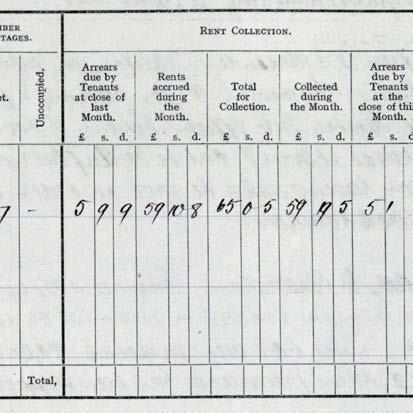 MBER
TAGES.
RENT COLLECTION.
et.
Unoccupied.
Arrears due by Tenants at close of last Month.
Rents accrued during the Month.
Total for Collection.
Collected during the Month.
Arrears due by Tenants at the close of this Month.
£ s. d. £ s. d. £ s. d. £ s. d. £ s.
7 - 5 9 9 59 10 8 65 0 5 59 19 5 5 1
Total,